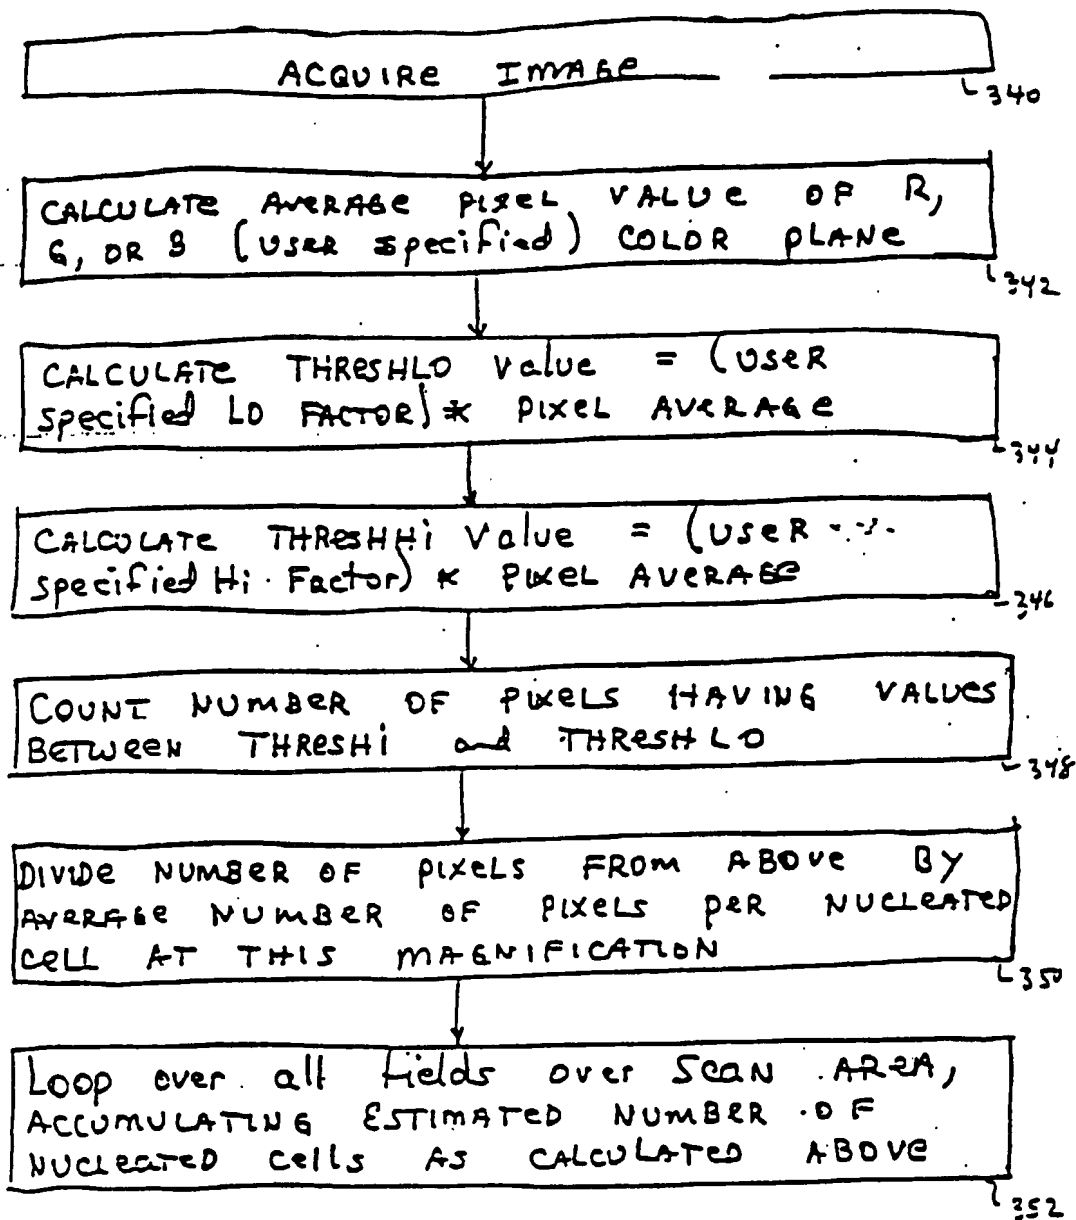 ACQUIRE IMAGE
340
CALCULATE AVERAGE PIXEL VALUE OF R,
G, OR B (USER specified) COLOR PLANE
342
CALCULATE THRESHLO Value = (USER
specified LO FACTOR) * PIXEL AVERAGE
344
CALCULATE THRESHHi Value = (USER
specified Hi Factor) * PIXEL AVERAGE
346
COUNT NUMBER OF PIXELS HAVING VALUES
BETWEEN THRESHi and THRESHLO
348
DIVIDE NUMBER OF PIXELS FROM ABOVE BY
AVERAGE NUMBER OF PIXELS PER NUCLEATED
CELL AT THIS MAGNIFICATION
350
Loop over all fields over Scan AREA,
ACCUMULATING ESTIMATED NUMBER OF
NUCLEATED cells AS CALCULATED ABOVE
352